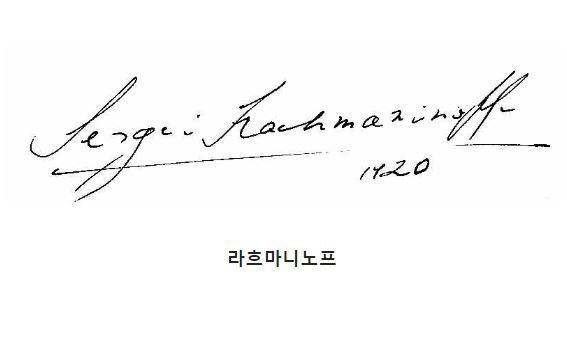 Sergei Rachmaninoff
1920
라흐마니노프